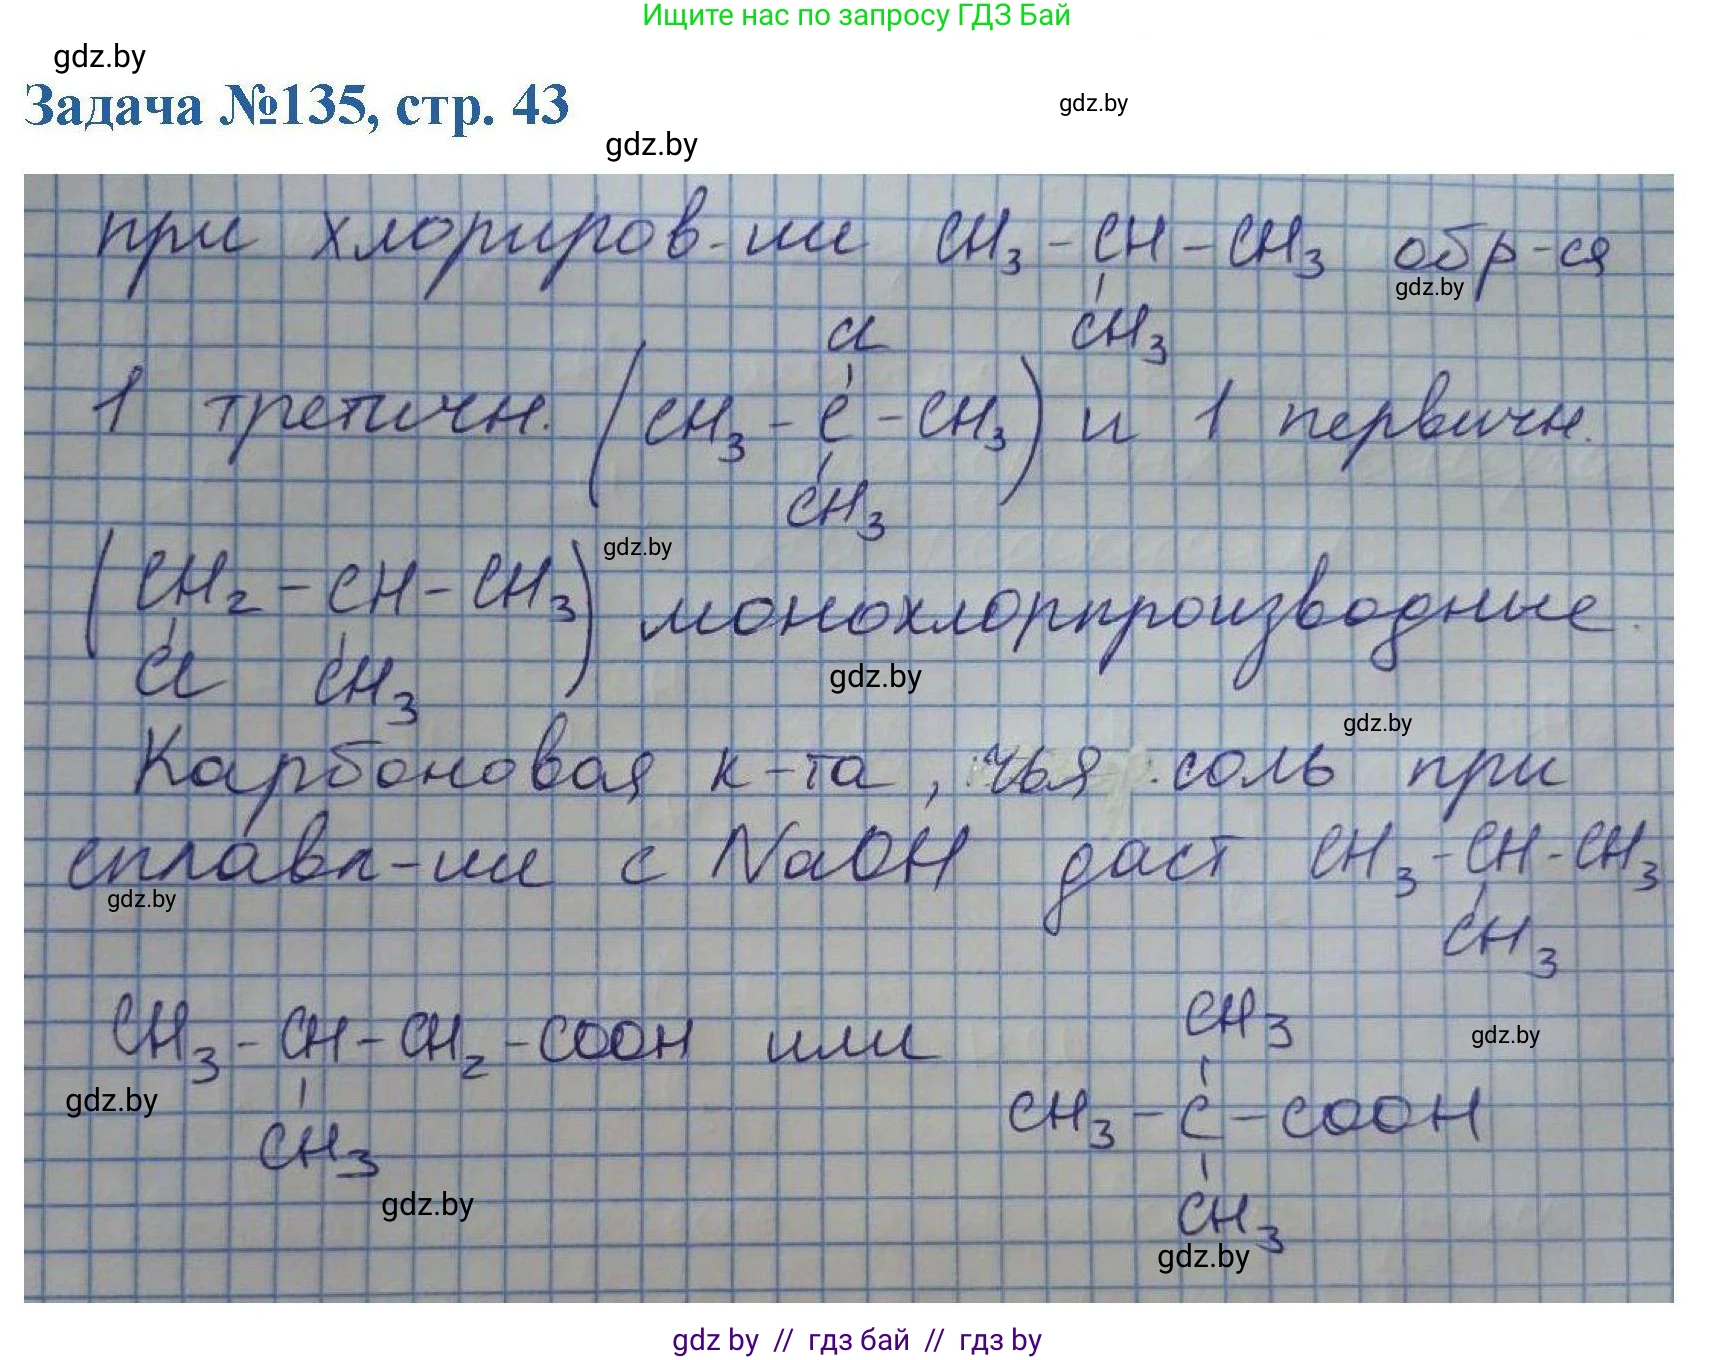 Ищите нас по запросу ГДЗ Бай
gdz.by
Задача №135, стр. 43
gdz.by
gdz.by
при хлориров-ии CH₃-CH-CH₃ обр-ся
gdz.by
Cl CH₃
1 третичн. (CH₃-C-CH₃) и 1 первичн.
CH₃
gdz.by
(CH₂-CH-CH₃) монохлорпроизводные.
Cl CH₃
gdz.by
gdz.by
Карбоновая к-та, чья соль при
сплавл-ии с NaOH даст CH₃-CH-CH₃
gdz.by
CH₃
CH₃
CH₃-CH-CH₂-COOH или
gdz.by
gdz.by
CH₃-C-COOH
CH₃
gdz.by
CH₃
gdz.by
gdz by // гдз бай // гдз by